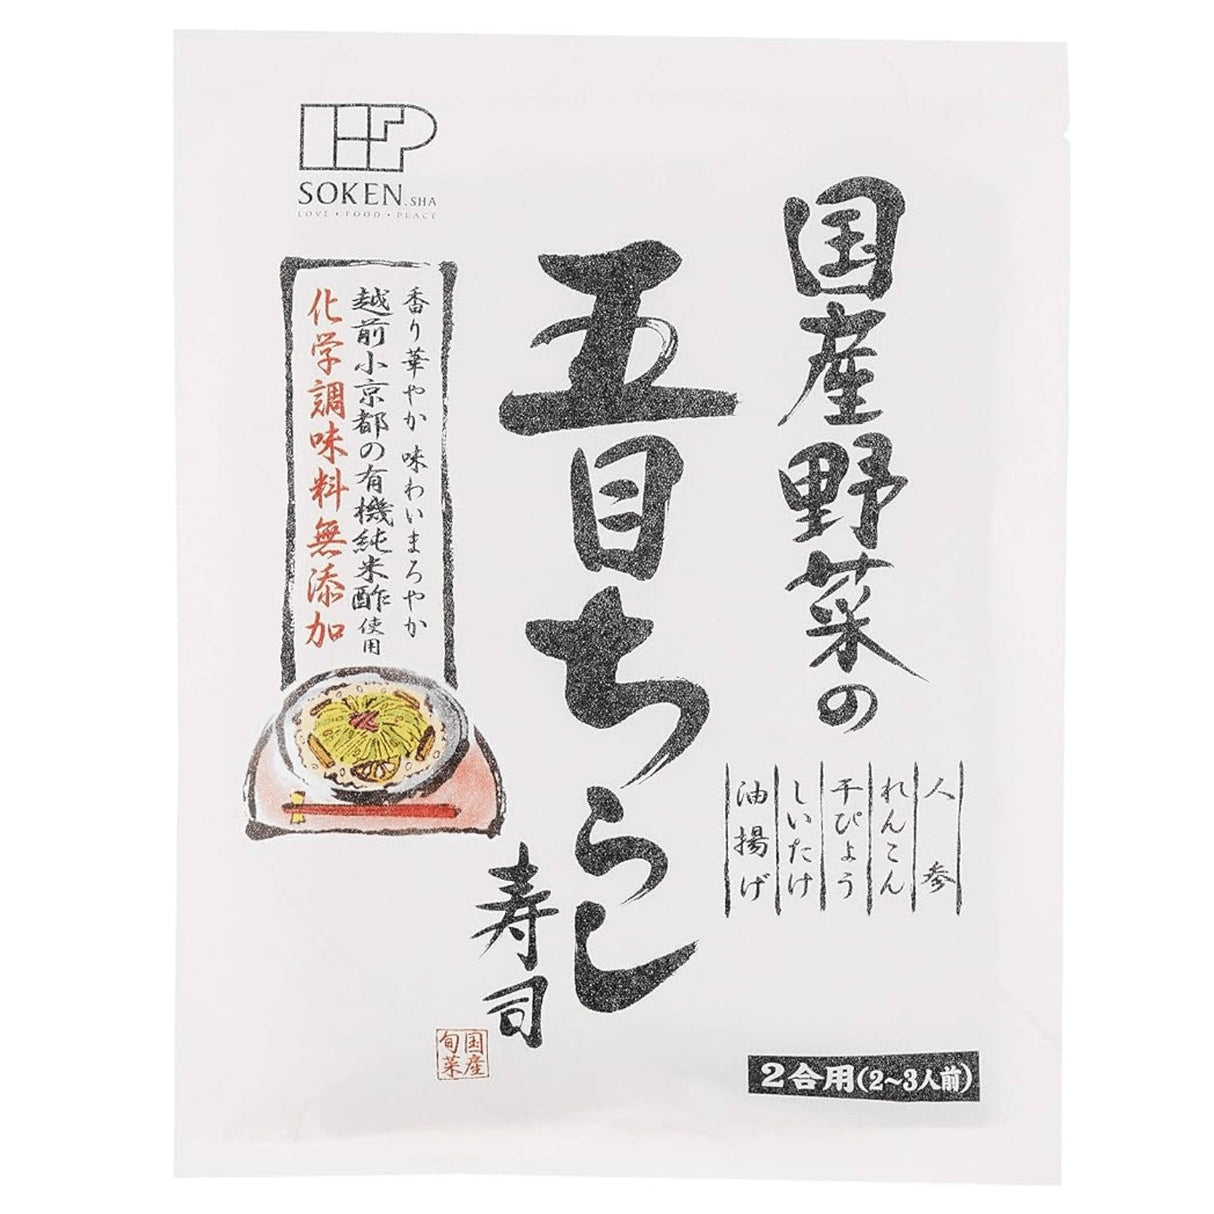 SOKEN.SHA
LOVE・FOOD・PEACE
国産野菜の
五目ちらし
寿司
人参
れんこん
干ぴょう
しいたけ
油揚げ
香り華やか 味わいまろやか
越前小京都の有機純米酢使用
化学調味料無添加
国産
旬菜
2合用(2~3人前)